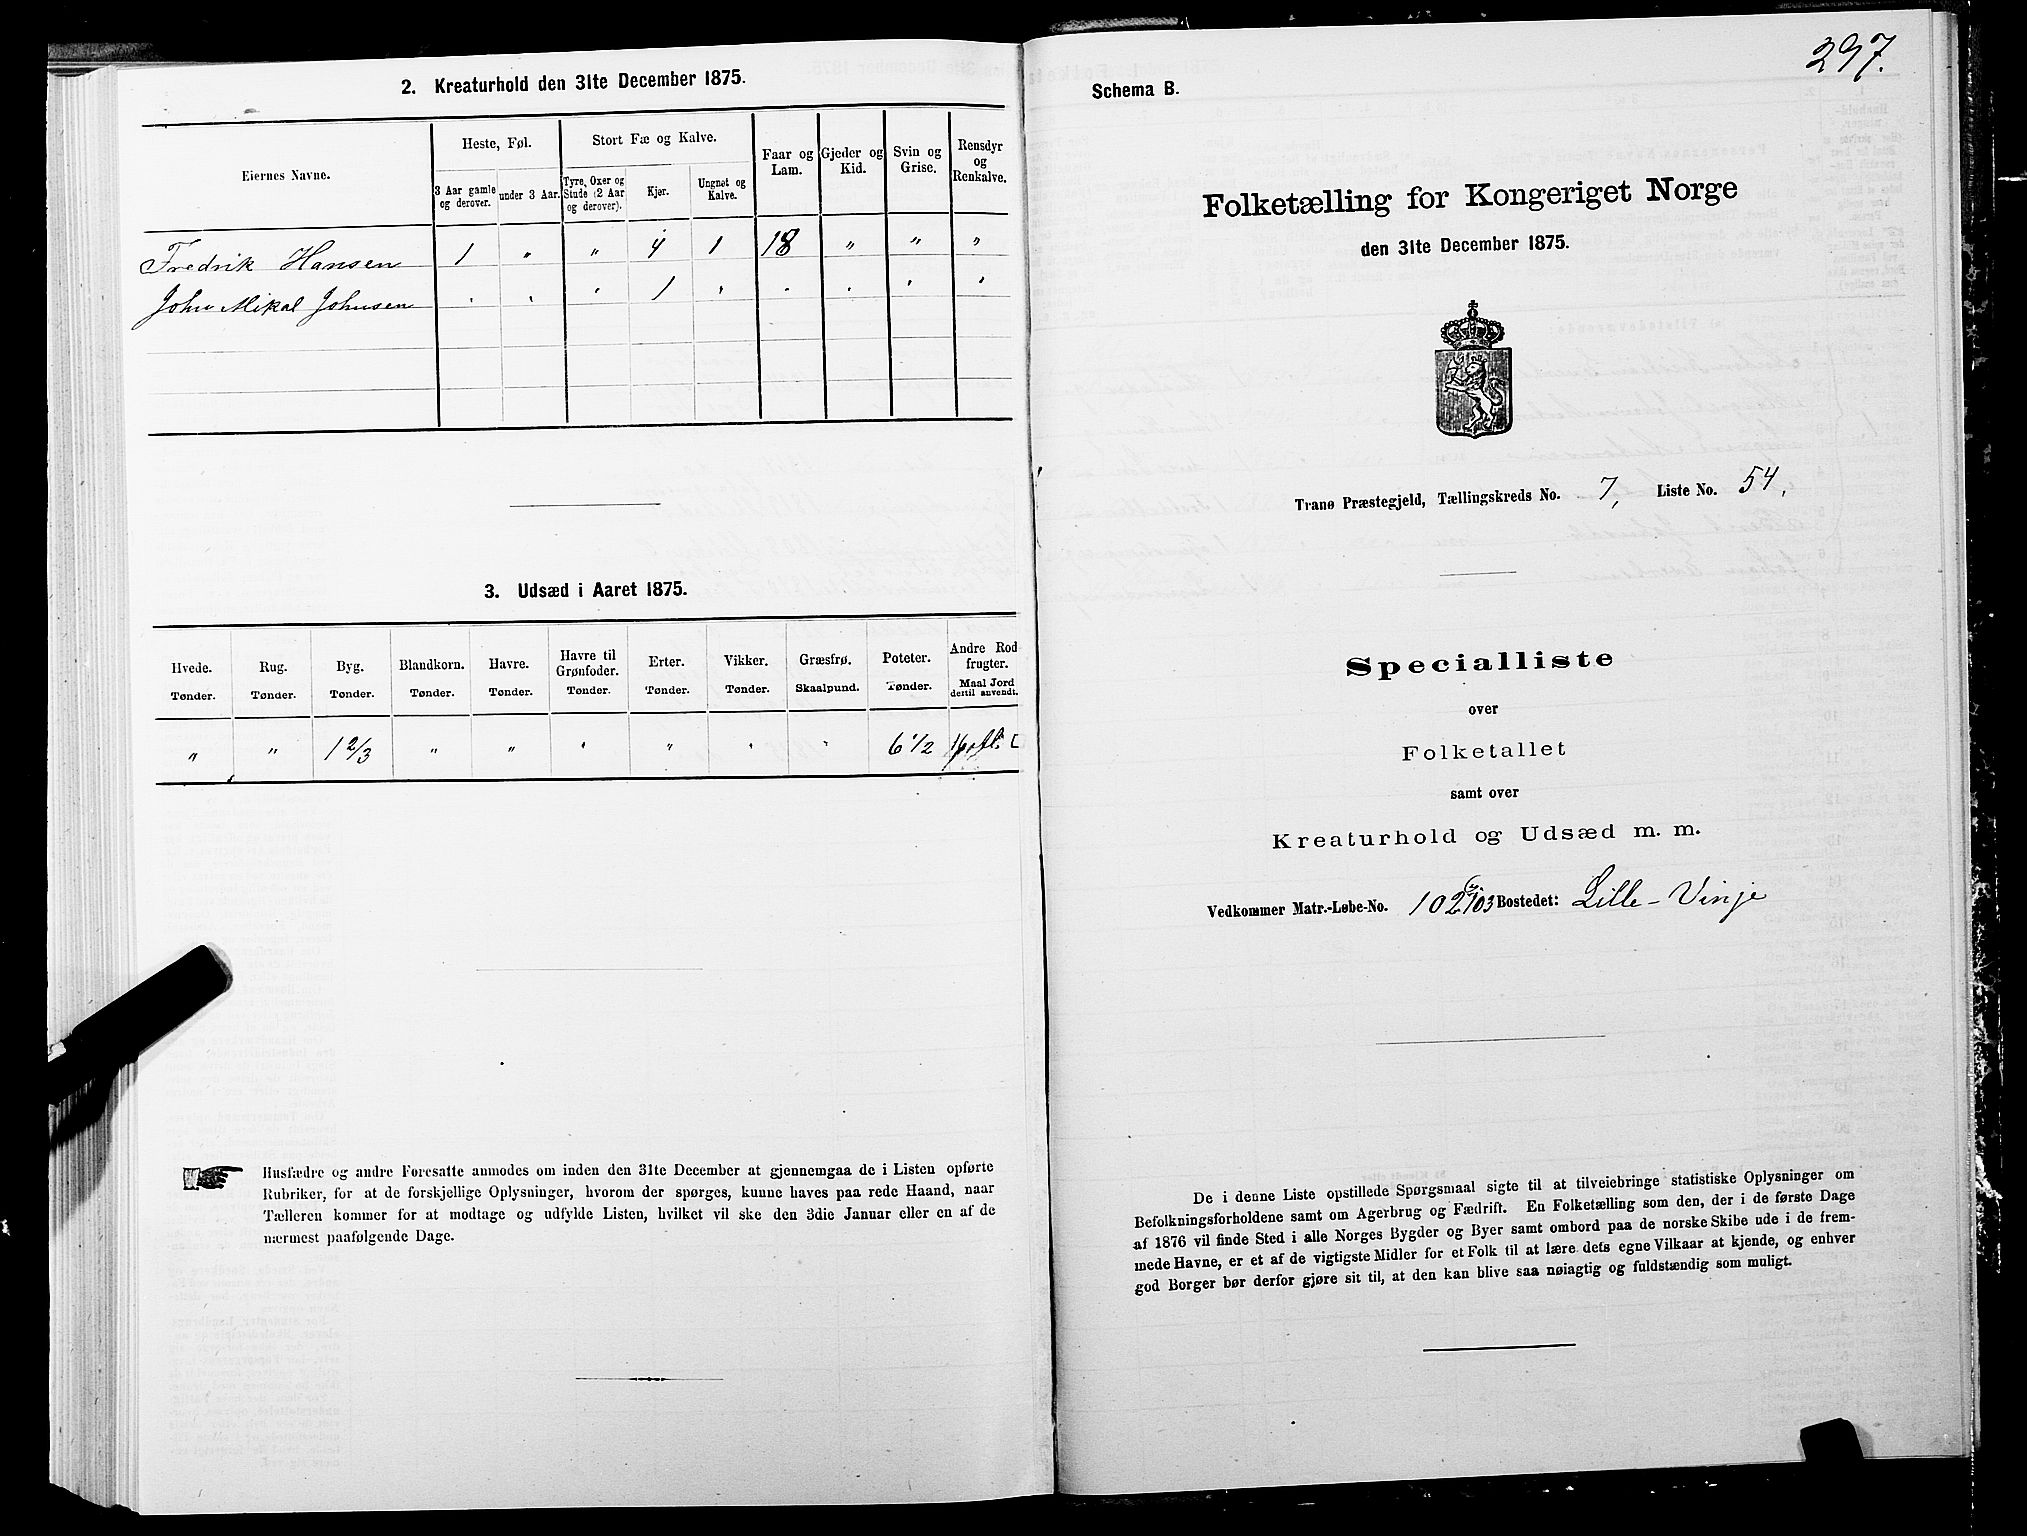 2. Kreaturhold den 31te December 1875.
Eiernes Navne.
Heste, Føl.
Stort Fæ og Kalve.
Faar og Lam.
Gjeder og Kid.
Svin og Grise.
Rensdyr og Renkalve.
3 Aar gamle og derover.
under 3 Aar.
Tyre, Oxer og Stude (2 Aar og derover).
Kjør.
Ungnøt og Kalve.
Fredrik Hansen 1 " " 4 1 18 " " "
John Mikal Johnsen " " " 1 " " " " "
3. Udsæd i Aaret 1875.
Hvede. Rug. Byg. Blandkorn. Havre. Havre til Grønfoder. Erter. Vikker. Græsfrø. Poteter. Andre Rodfrugter.
Tønder. Tønder. Tønder. Tønder. Tønder. Tønder. Tønder. Tønder. Skaalpund. Tønder. Maal Jord dertil anvendt.
" " 1 2/3 " " " " " " 6 1/2
Husfædre og andre Foresatte anmodes om inden den 31te December at gjennemgaa de i Listen opførte
Rubriker, for at de forskjellige Oplysninger, hvorom der spørges, kunne haves paa rede Haand, naar
Tælleren kommer for at modtage og udfylde Listen, hvilket vil ske den 3die Januar eller en af de
nærmest paafølgende Dage.
297.
Schema B.
Folketælling for Kongeriget Norge
den 31te December 1875.
Tranø Præstegjeld, Tællingskreds No. 7, Liste No. 54,
Specialliste
over
Folketallet
samt over
Kreaturhold og Udsæd m. m.
Vedkommer Matr.-Løbe-No. 102 103 Bostedet: Lille-Vinje
De i denne Liste opstillede Spørgsmaal sigte til at tilveiebringe statistiske Oplysninger om
Befolkningsforholdene samt om Agerbrug og Fædrift. En Folketælling som den, der i de første Dage
af 1876 vil finde Sted i alle Norges Bygder og Byer samt ombord paa de norske Skibe ude i de frem-
mede Havne, er et af de vigtigste Midler for et Folk til at lære dets egne Vilkaar at kjende, og enhver
god Borger bør derfor gjøre sit til, at den kan blive saa nøiagtig og fuldstændig som muligt.